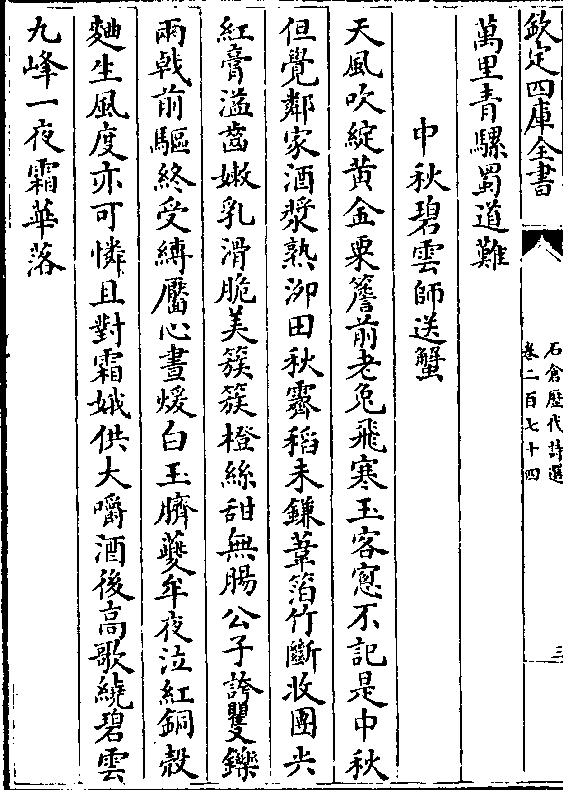 欽定四庫全書
石倉歷代詩選
卷二百七十四
三
萬里青騾蜀道難
中秋碧雲師送蟹
天風吹綻黄金粟簷前老兔飛寒玉客窻不記是中秋
但覺鄰家酒漿熟泖田秋霽稻未鎌葦箔竹斷收團尖
紅膏溢齒嫩乳滑脆美簇簇橙絲甜無腸公子誇矍鑠
兩戟前驅終受縛靨心晝煖白玉臍䕫牟夜泣紅銅殻
麯生風度亦可憐且對霜娥供大嚼酒後高歌繞碧雲
九峰一夜霜華落